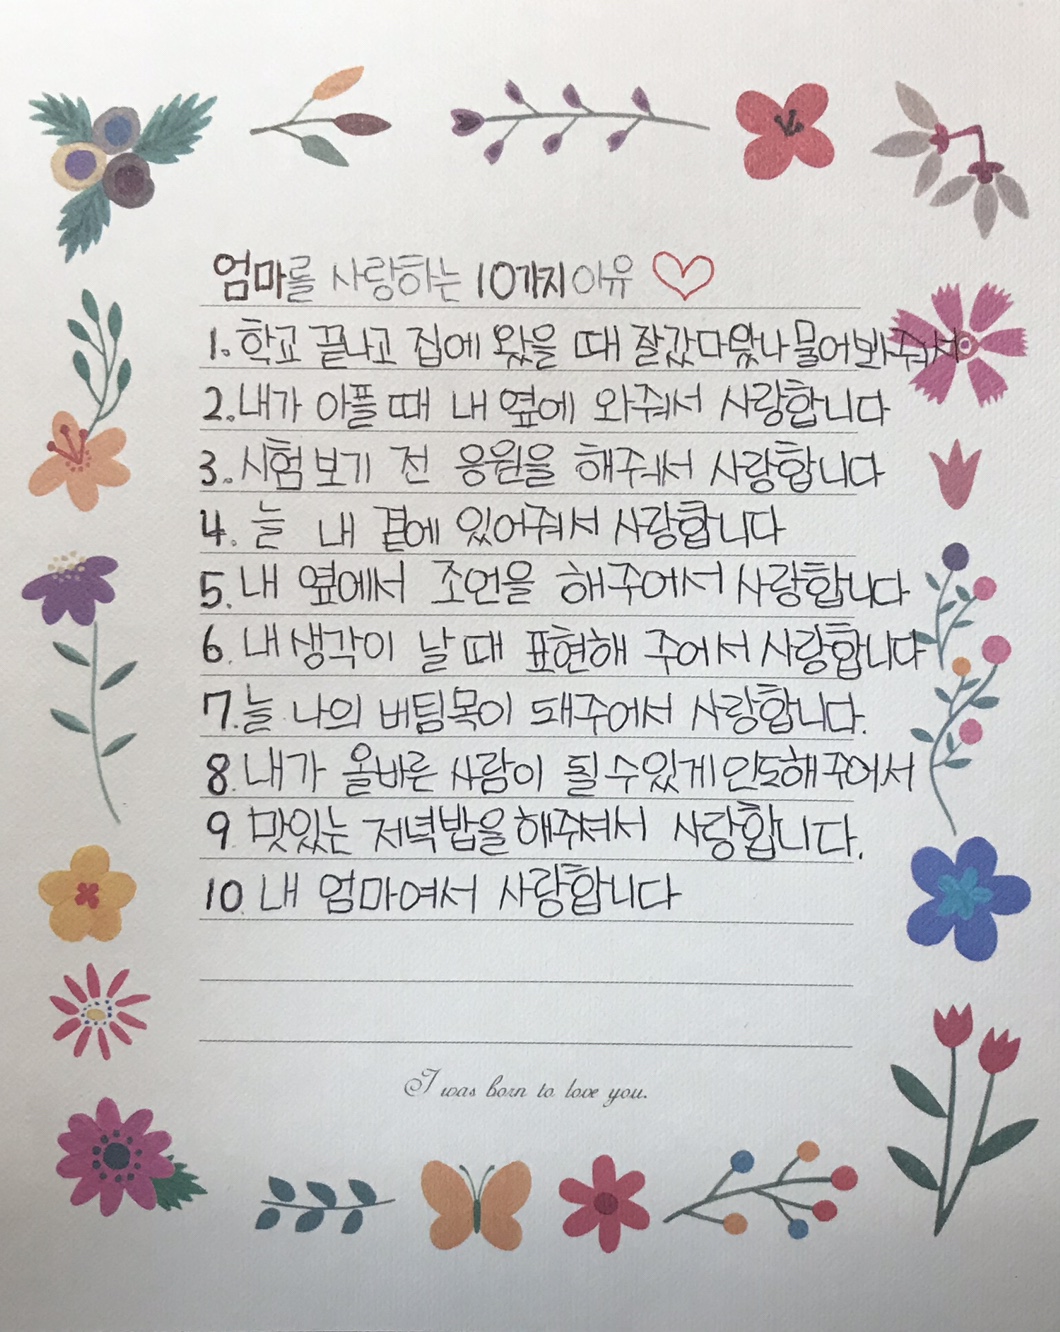 엄마를 사랑하는 10가지이유
1. 학교 끝나고 집에 왔을 때 잘갔다왔나물어봐줘서
2. 내가 아플때 내 옆에 와줘서 사랑합니다
3. 시험보기 전 응원을 해줘서 사랑합니다
4. 늘 내 곁에 있어줘서 사랑합니다
5. 내 옆에서 조언을 해주어서 사랑합니다
6. 내생각이 날때 표현해 주어서 사랑합니다
7. 늘 나의 버팀목이 돼주어서 사랑합니다.
8. 내가 올바른 사람이 될수있게인도해주어서
9. 맛있는 저녁밥을해주셔서 사랑합니다.
10. 내 엄마여서 사랑합니다
I was born to love you.